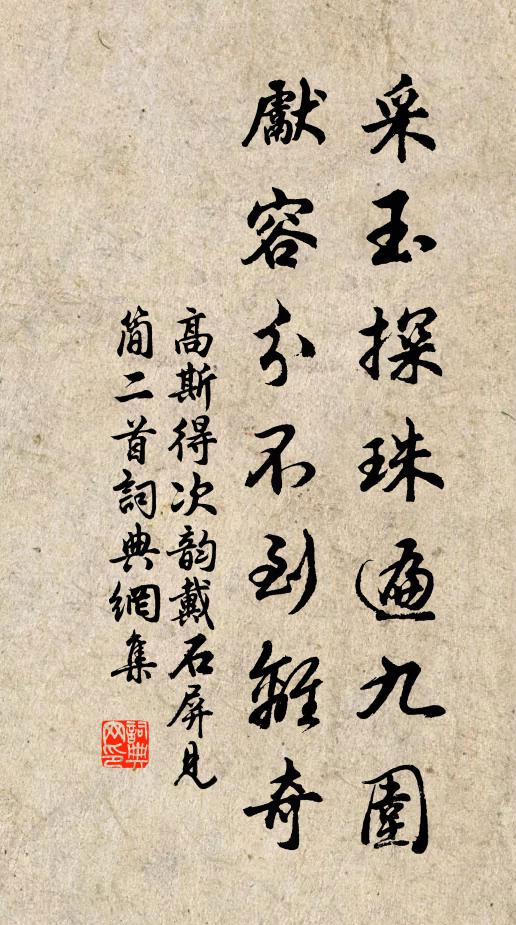 采玉探珠遍九圍
獻容分不到離奇
高斯得次韵戴石屏見
简二首詞典網集
詞典網印